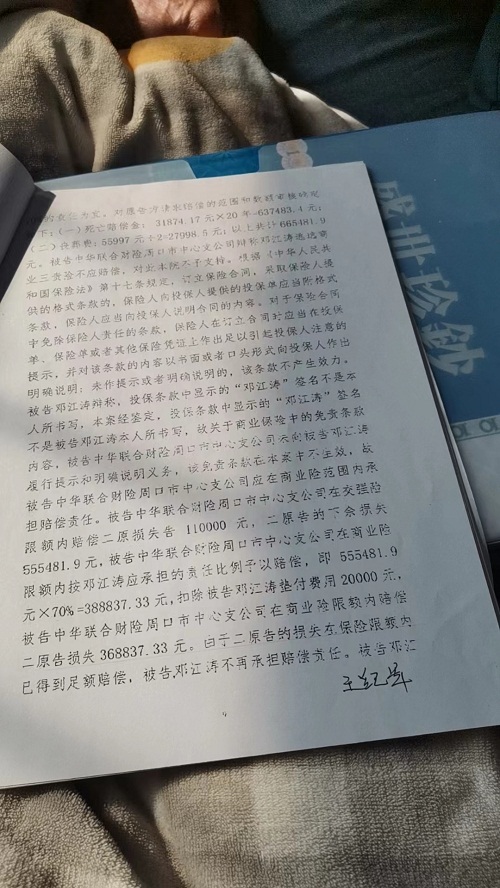 的责任为宜。对原告方请求赔偿的范围和数额审核认定
下：(一)死亡赔偿金： 31874.17 元×20 年=637483.4 元；
(二)丧葬费：55997 元÷2=27998.5 元；以上共计 665481.9
元。被告中华联合财险周口市中心支公司辩称邓江涛逃逸商
业三责险不应赔偿，对此本院不予支持。根据《中华人民共
和国保险法》第十七条规定，订立保险合同，采取保险人提
供的格式条款的，保险人向投保人提供的投保单应当附格式
条款，保险人应当向投保人说明合同的内容。对于保险合同
中免除保险人责任的条款，保险人在订立合同时应当在投保
单、保险单或者其他保险凭证上作出足以引起投保人注意的
提示，并对该条款的内容以书面或者口头形式向投保人作出
明确说明；未作提示或者明确说明的，该条款不产生效力。
被告邓江涛辩称，投保条款中显示的“邓江涛”签名不是本
人所书写，本案经鉴定，投保条款中显示的“邓江涛”签名
不是被告邓江涛本人所书写，故关于商业保险中的免责条款
内容，被告中华联合财险周口市中心支公司未向被告邓江涛
履行提示和明确说明义务，该免责条款在本案中不生效，故
被告中华联合财险周口市中心支公司应在商业险范围内承
担赔偿责任。被告中华联合财险周口市中心支公司在交强险
限额内赔偿二原损失告 110000 元，二原告的下余损失
555481.9 元，被告中华联合财险周口市中心支公司在商业险
限额内按邓江涛应承担的责任比例予以赔偿，即 555481.9
元×70%=388837.33 元，扣除被告邓江涛垫付费用 20000 元，
被告中华联合财险周口市中心支公司在商业险限额内赔偿
二原告损失 368837.33 元。由于二原告的损失在保险限额内
已得到足额赔偿，被告邓江涛不再承担赔偿责任。被告邓江
盛世珍钞